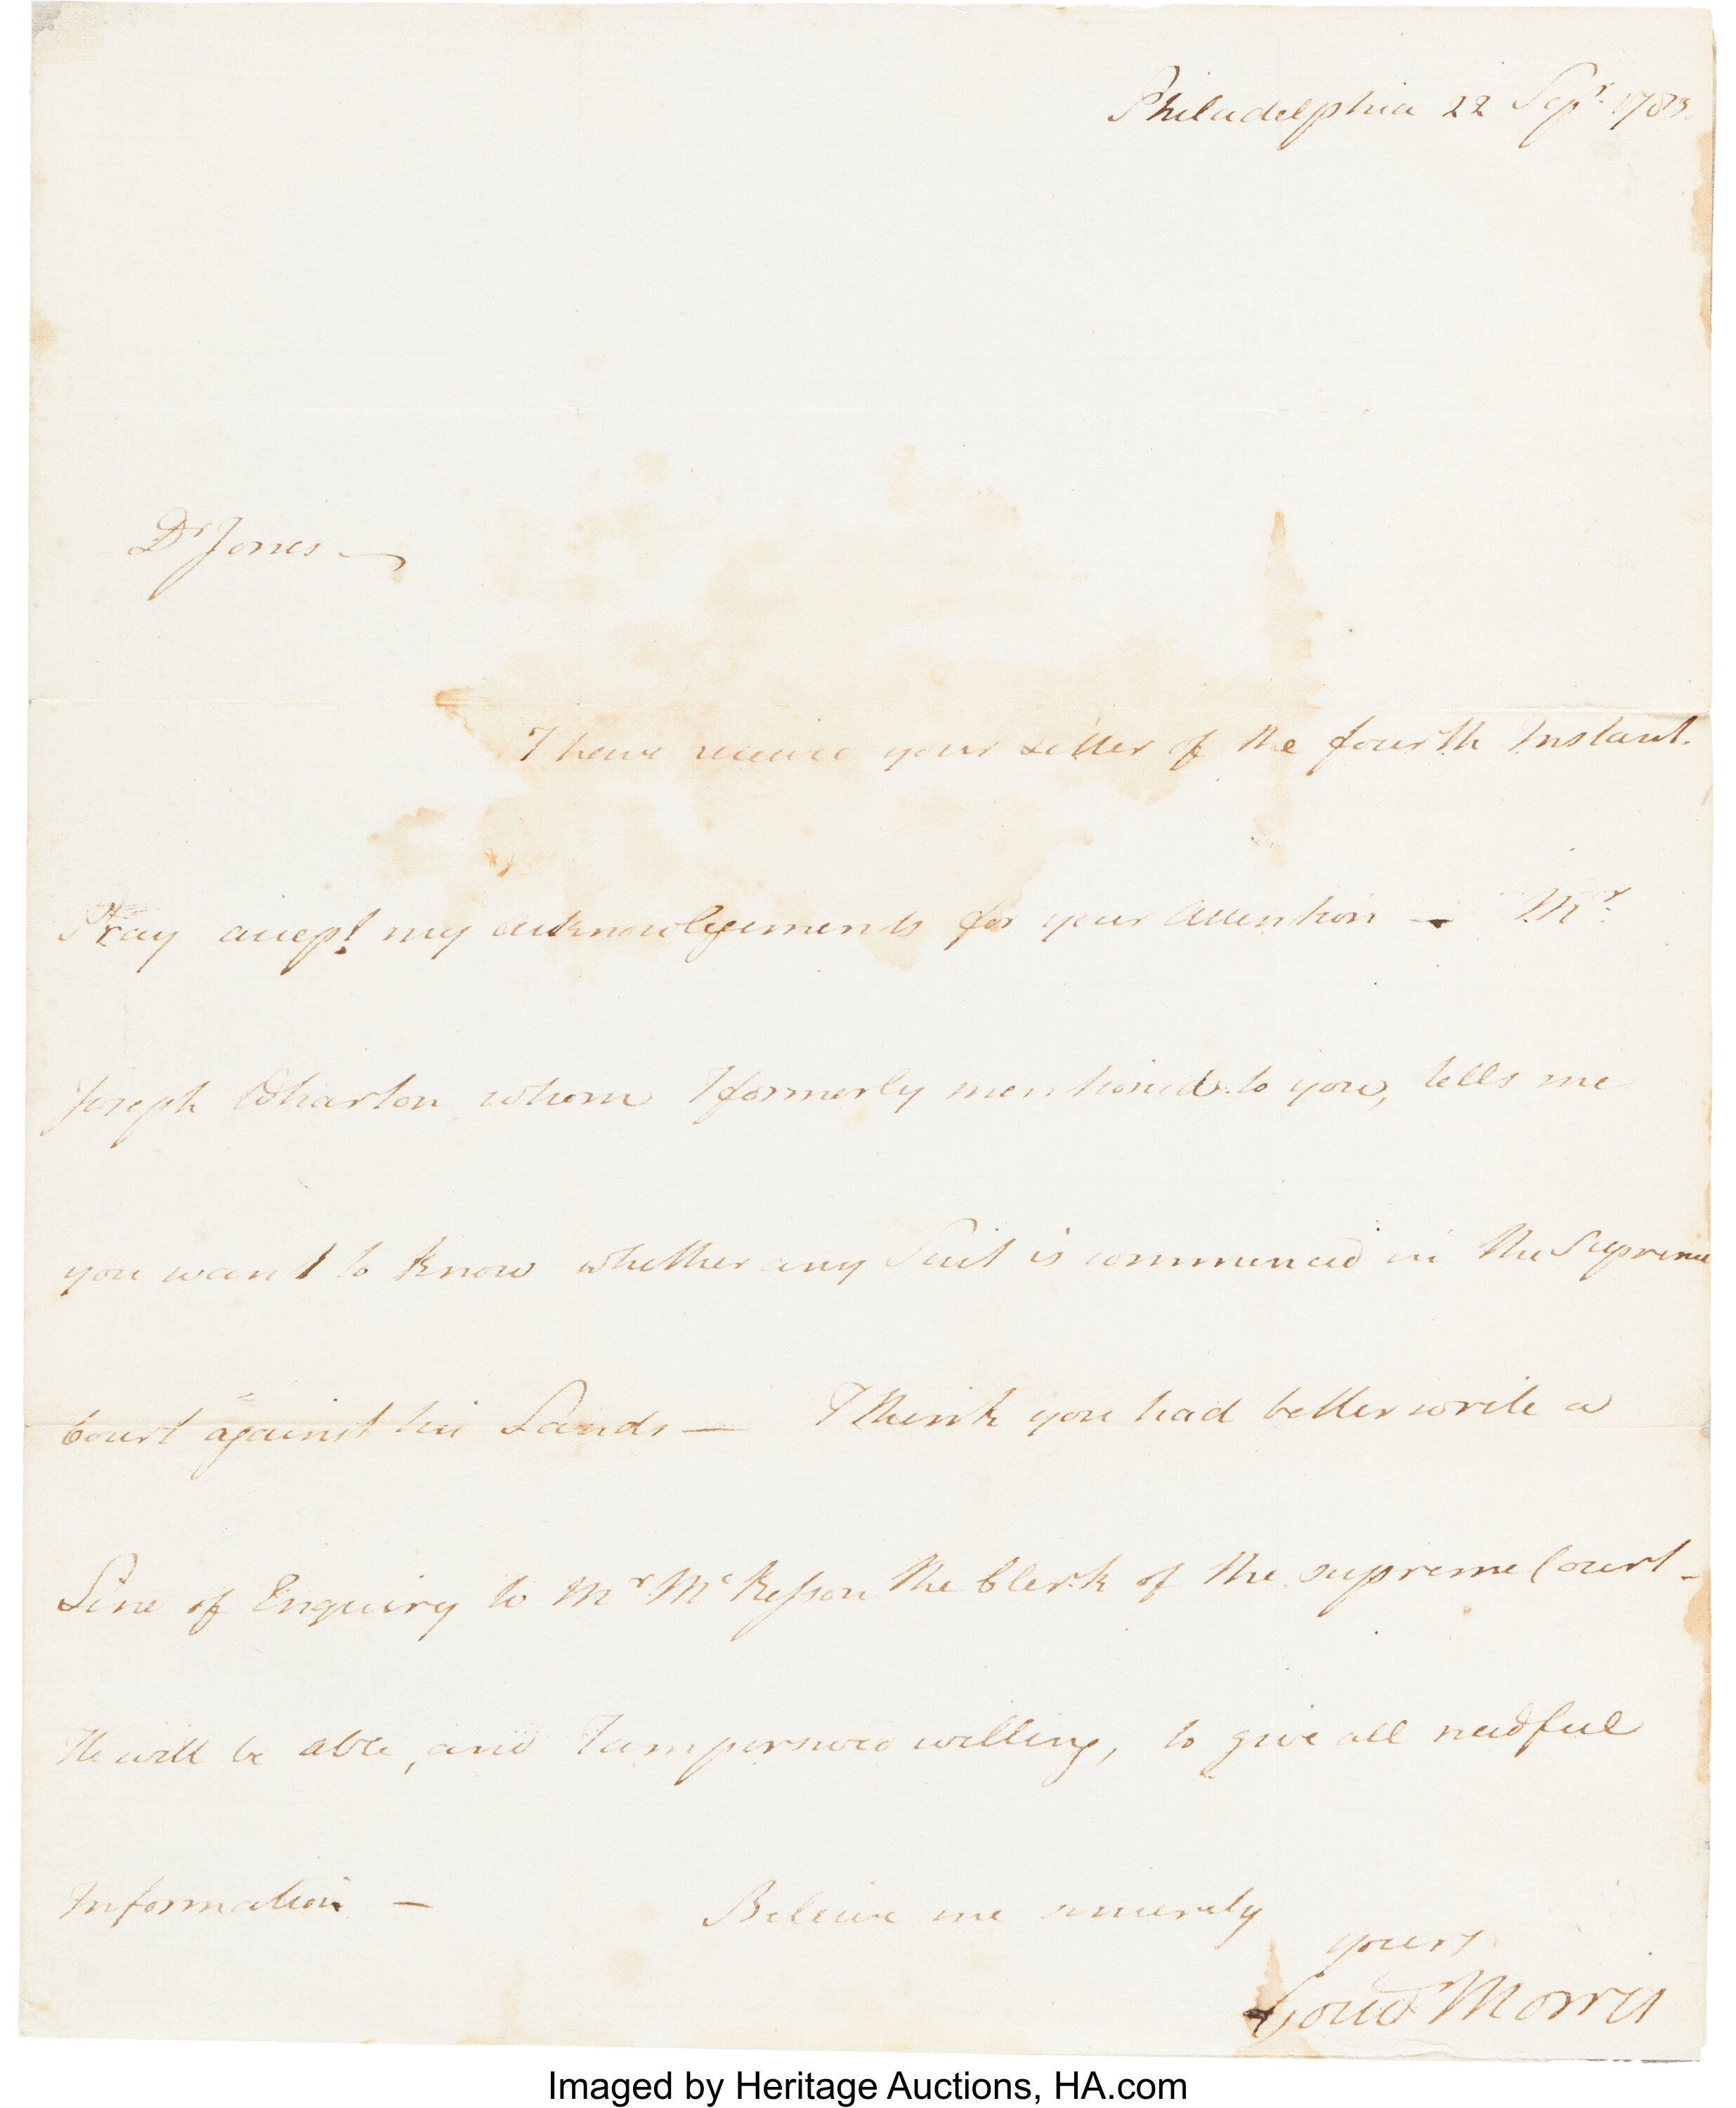 Philadelphia 22 Sepr. 1783.
Dr Jones —
I have received your Letter of the fourth Instant.
Pray accept my acknowlegements for your Attention — Mr.
Joseph Wharton whom I formerly mentioned to you, tells me
you want to know whether any Suit is commenced in the Supreme
Court against his Lands — I think you had better write a
Line of Enquiry to Mr McKesson the Clerk of the supreme Court -
He will be able, and I am perswd willing, to give all needful
Information — Beleive me sincerely
yours
Gouv Morris
Imaged by Heritage Auctions, HA.com